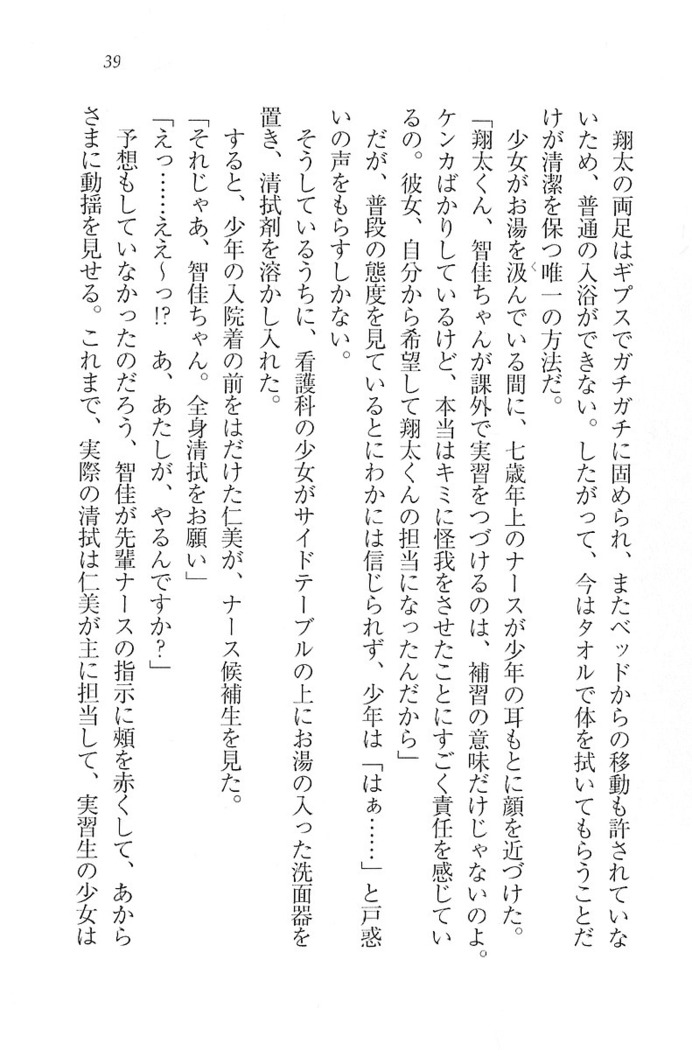 39
翔太の両足はギプスでガチガチに固められ、またベッドからの移動も許されていな
いため、普通の入浴ができない。したがって、今はタオルで体を拭いてもらうことだ
けが清潔を保つ唯一の方法だ。
少女がお湯を汲んでいる間に、七歳年上のナースが少年の耳もとに顔を近づけた。
「翔太くん、智佳ちゃんが課外で実習をつづけるのは、補習の意味だけじゃないのよ。
ケンカばかりしているけど、本当はキミに怪我をさせたことにすごく責任を感じてい
るの。彼女、自分から希望して翔太くんの担当になったんだから」
だが、普段の態度を見ているとにわかには信じられず、少年は「はぁ……」と戸惑
いの声をもらすしかない。
そうしているうちに、看護科の少女がサイドテーブルの上にお湯の入った洗面器を
置き、清拭剤を溶かし入れた。
すると、少年の入院着の前をはだけた仁美が、ナース候補生を見た。
「それじゃあ、智佳ちゃん。全身清拭をお願い」
「えっ……ええ〜っ!?　あ、あたしが、やるんですか？」
予想もしていなかったのだろう、智佳が先輩ナースの指示に頰を赤くして、あから
さまに動揺を見せる。これまで、実際の清拭は仁美が主に担当して、実習生の少女は